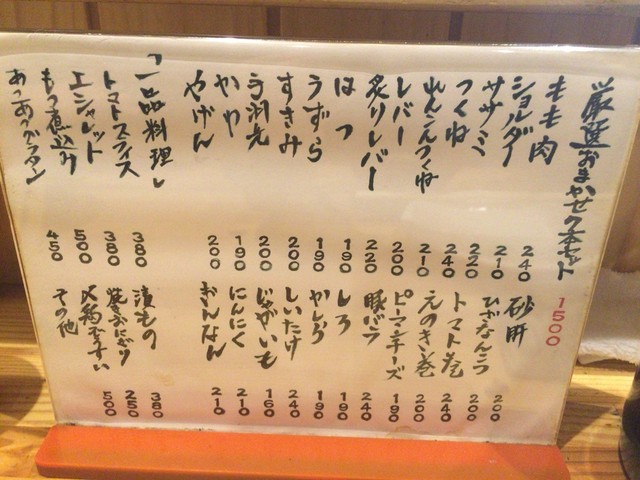 厳選おまかせ7本セット 1500
もも肉 240
ショルダー 210
ササミ 220
つくね 240
れんこんつくね 210
レバー 200
炙りレバー 220
はつ 190
うずら 190
すきみ 200
手羽先 200
かわ 190
やげん 200
砂肝 200
ひざなんこつ 200
トマト巻 240
えのき巻 200
ピーマンチーズ 190
豚バラ 240
しろ 190
かしら 190
しいたけ 240
じゃがいも 160
にんにく 210
ぎんなん 210
「一品料理」
トマトスライス 380
エシャレット 380
もつ煮込み 500
あつあつグラタン 450
漬もの 380
焼きおにぎり 250
ぞうすい 500
その他